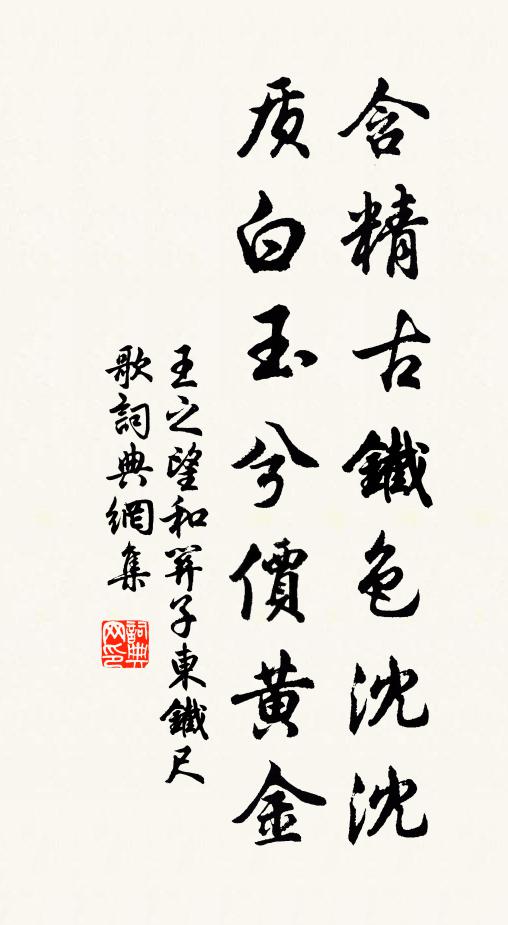 含精古鐵色沈沈
质白玉兮價黃金
王之望和關子東鐵尺
歌詞典網集
詞典
网印